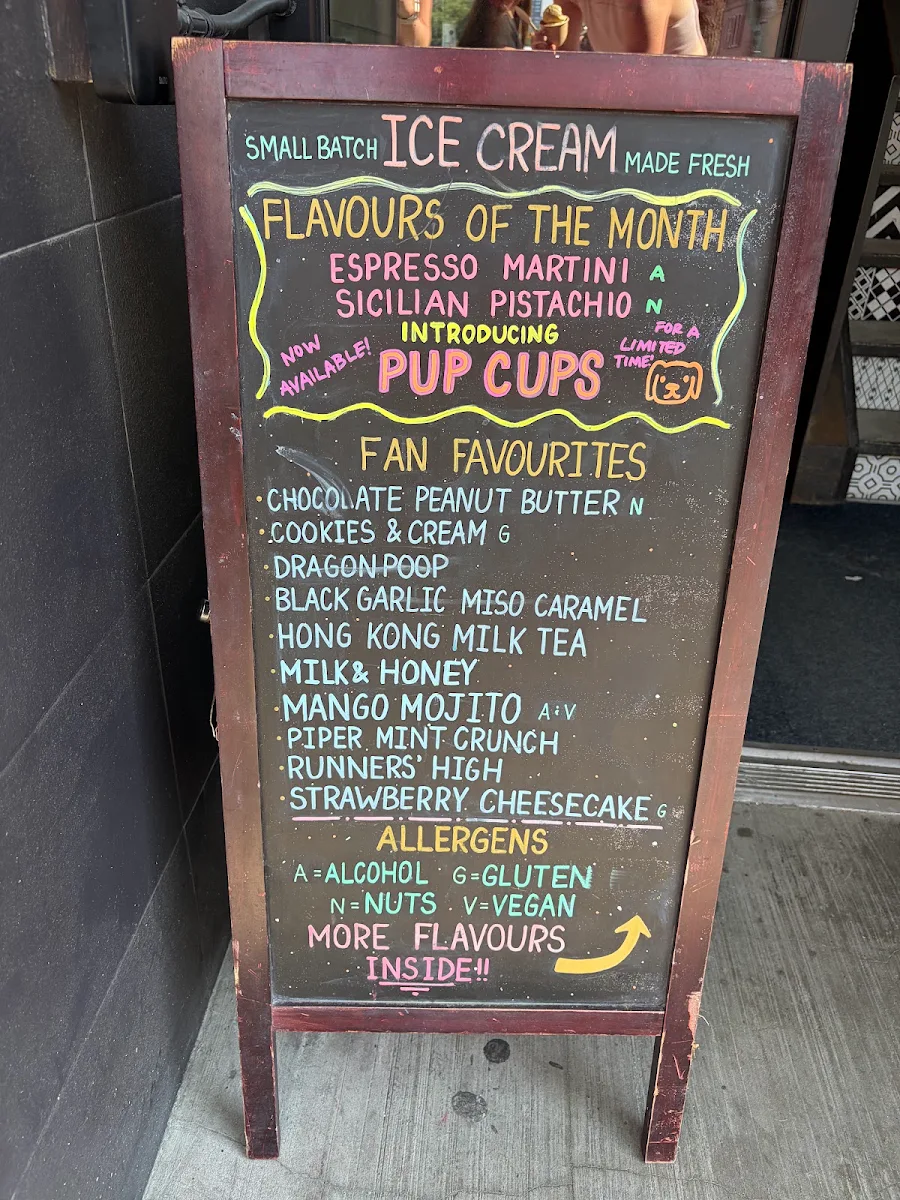 SMALL BATCH ICE CREAM MADE FRESH
FLAVOURS OF THE MONTH
ESPRESSO MARTINI A
SICILIAN PISTACHIO N
INTRODUCING
NOW AVAILABLE!
PUP CUPS
FOR A
LIMITED
TIME!
FAN FAVOURITES
· CHOCOLATE PEANUT BUTTER N
· COOKIES & CREAM G
· DRAGON POOP
· BLACK GARLIC MISO CARAMEL
· HONG KONG MILK TEA
· MILK & HONEY
· MANGO MOJITO A & V
· PIPER MINT CRUNCH
· RUNNERS' HIGH
· STRAWBERRY CHEESECAKE G
ALLERGENS
A = ALCOHOL G = GLUTEN
N = NUTS V = VEGAN
MORE FLAVOURS
INSIDE!!